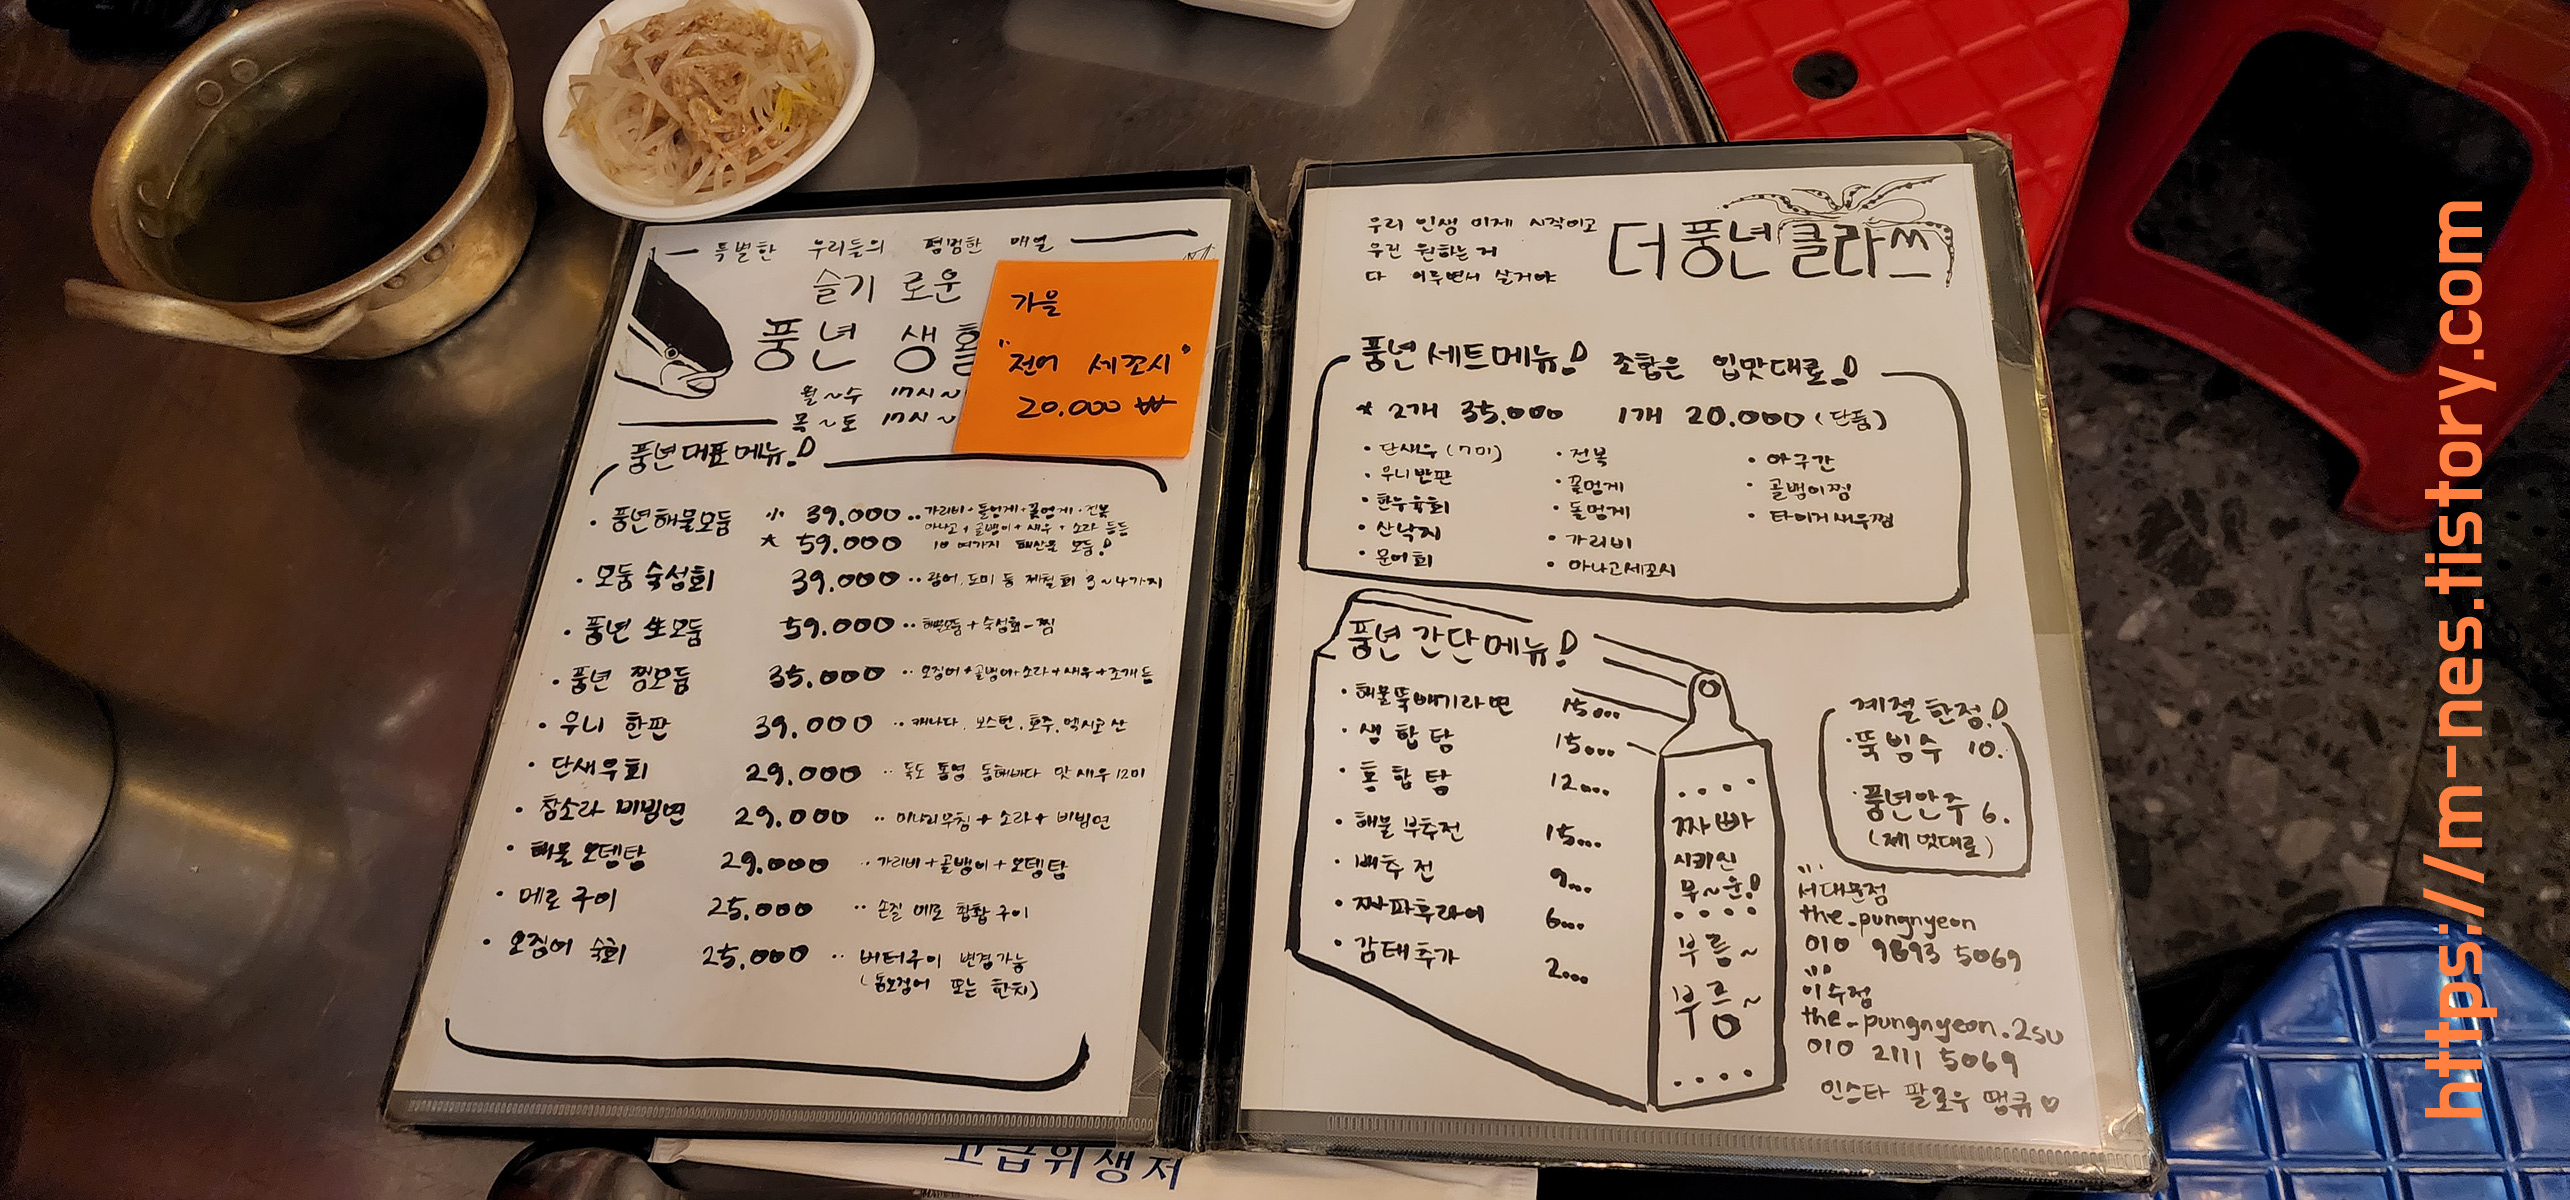 특별한 우리들의 평범한 매일
슬기로운
풍년 생활
월~수 17시~
목~토 17시~
가을
"전어 세꼬시"
20.000 ₩
풍년대표메뉴!
· 풍년해물모듬 小 39.000 ·· 가리비+돌멍게+꽃멍게+전복
아나고+골뱅이+새우+소라 등등
大 59.000 10여가지 해산물 모듬!
· 모듬 숙성회 39.000 ·· 광어, 도미 등 제철회 3~4가지
· 풍년 生모듬 59.000 ·· 해물모듬+숙성회-찜
· 풍년 찜모듬 35.000 ·· 오징어+골뱅이+소라+새우+조개 등
· 우니 한판 39.000 ·· 캐나다, 보스턴, 호주, 멕시코 산
· 단새우회 29.000 ·· 독도 통영 동해바다 맛새우 12미
· 참소라 비빔면 29.000 ·· 미나리무침+소라+비빔면
· 해물 오뎅탕 29.000 ·· 가리비+골뱅이+오뎅탕
· 메로 구이 25.000 ·· 손질 메로 촵촵 구이
· 오징어 숙회 25.000 ·· 버터구이 변경가능
(통오징어 또는 한치)
우리 인생 이제 시작이고
우린 원하는 거
다 이루면서 살거야
더풍년클라쓰
풍년세트메뉴! 조합은 입맛대로!
* 2개 35.000 1개 20.000 (단품)
· 단새우 (7미)
· 우니반판
· 한우육회
· 산낙지
· 문어회
· 전복
· 꽃멍게
· 돌멍게
· 가리비
· 아나고세꼬시
· 아구간
· 골뱅이찜
· 타이거새우찜
풍년간단메뉴!
· 해물뚝배기라면 15000
· 생합탕 15000
· 홍합탕 12000
· 해물 부추전 15000
· 배추전 9000
· 짜파후라이 6000
· 감태추가 2000
짜빠
시키신
부~운!
부릉~
부릉~
계절한정!
· 뚝빙수 10.
· 풍년안주 6.
(제 멋대로)
서대문점
the_pungnyeon
010 9893 5069
이수점
the_pungnyeon.2su
010 2111 5069
인스타 팔로우 땡큐♡
고급위생저
https://m-nes.tistory.com